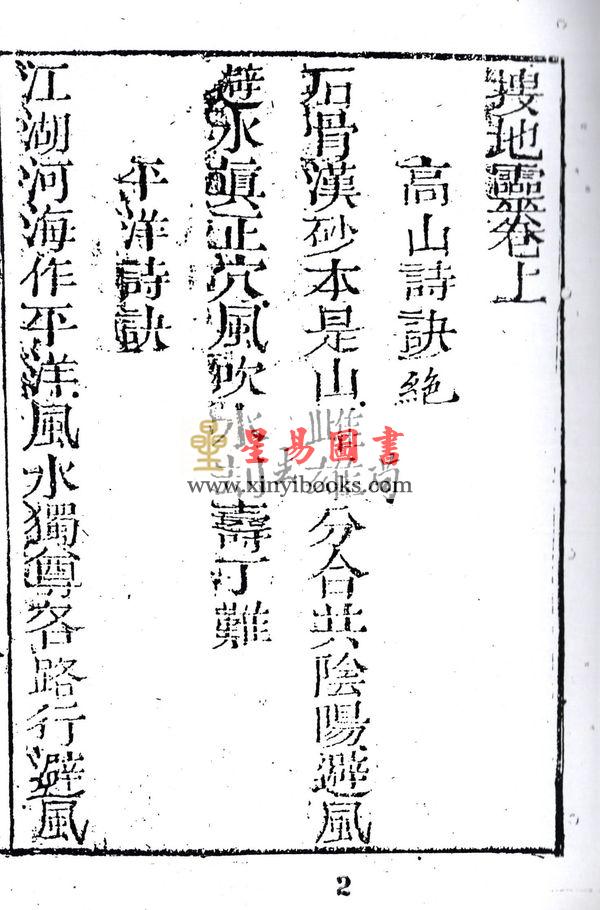 搜地靈卷上
高山詩訣絶
石骨漢砂本是山雌雄分合共陰陽避風
避水眞正穴風吹水刼壽丁難
平洋詩訣
江湖河海作平洋風水獨尊客路行避風
星易圖書
www.xinyibooks.com
2